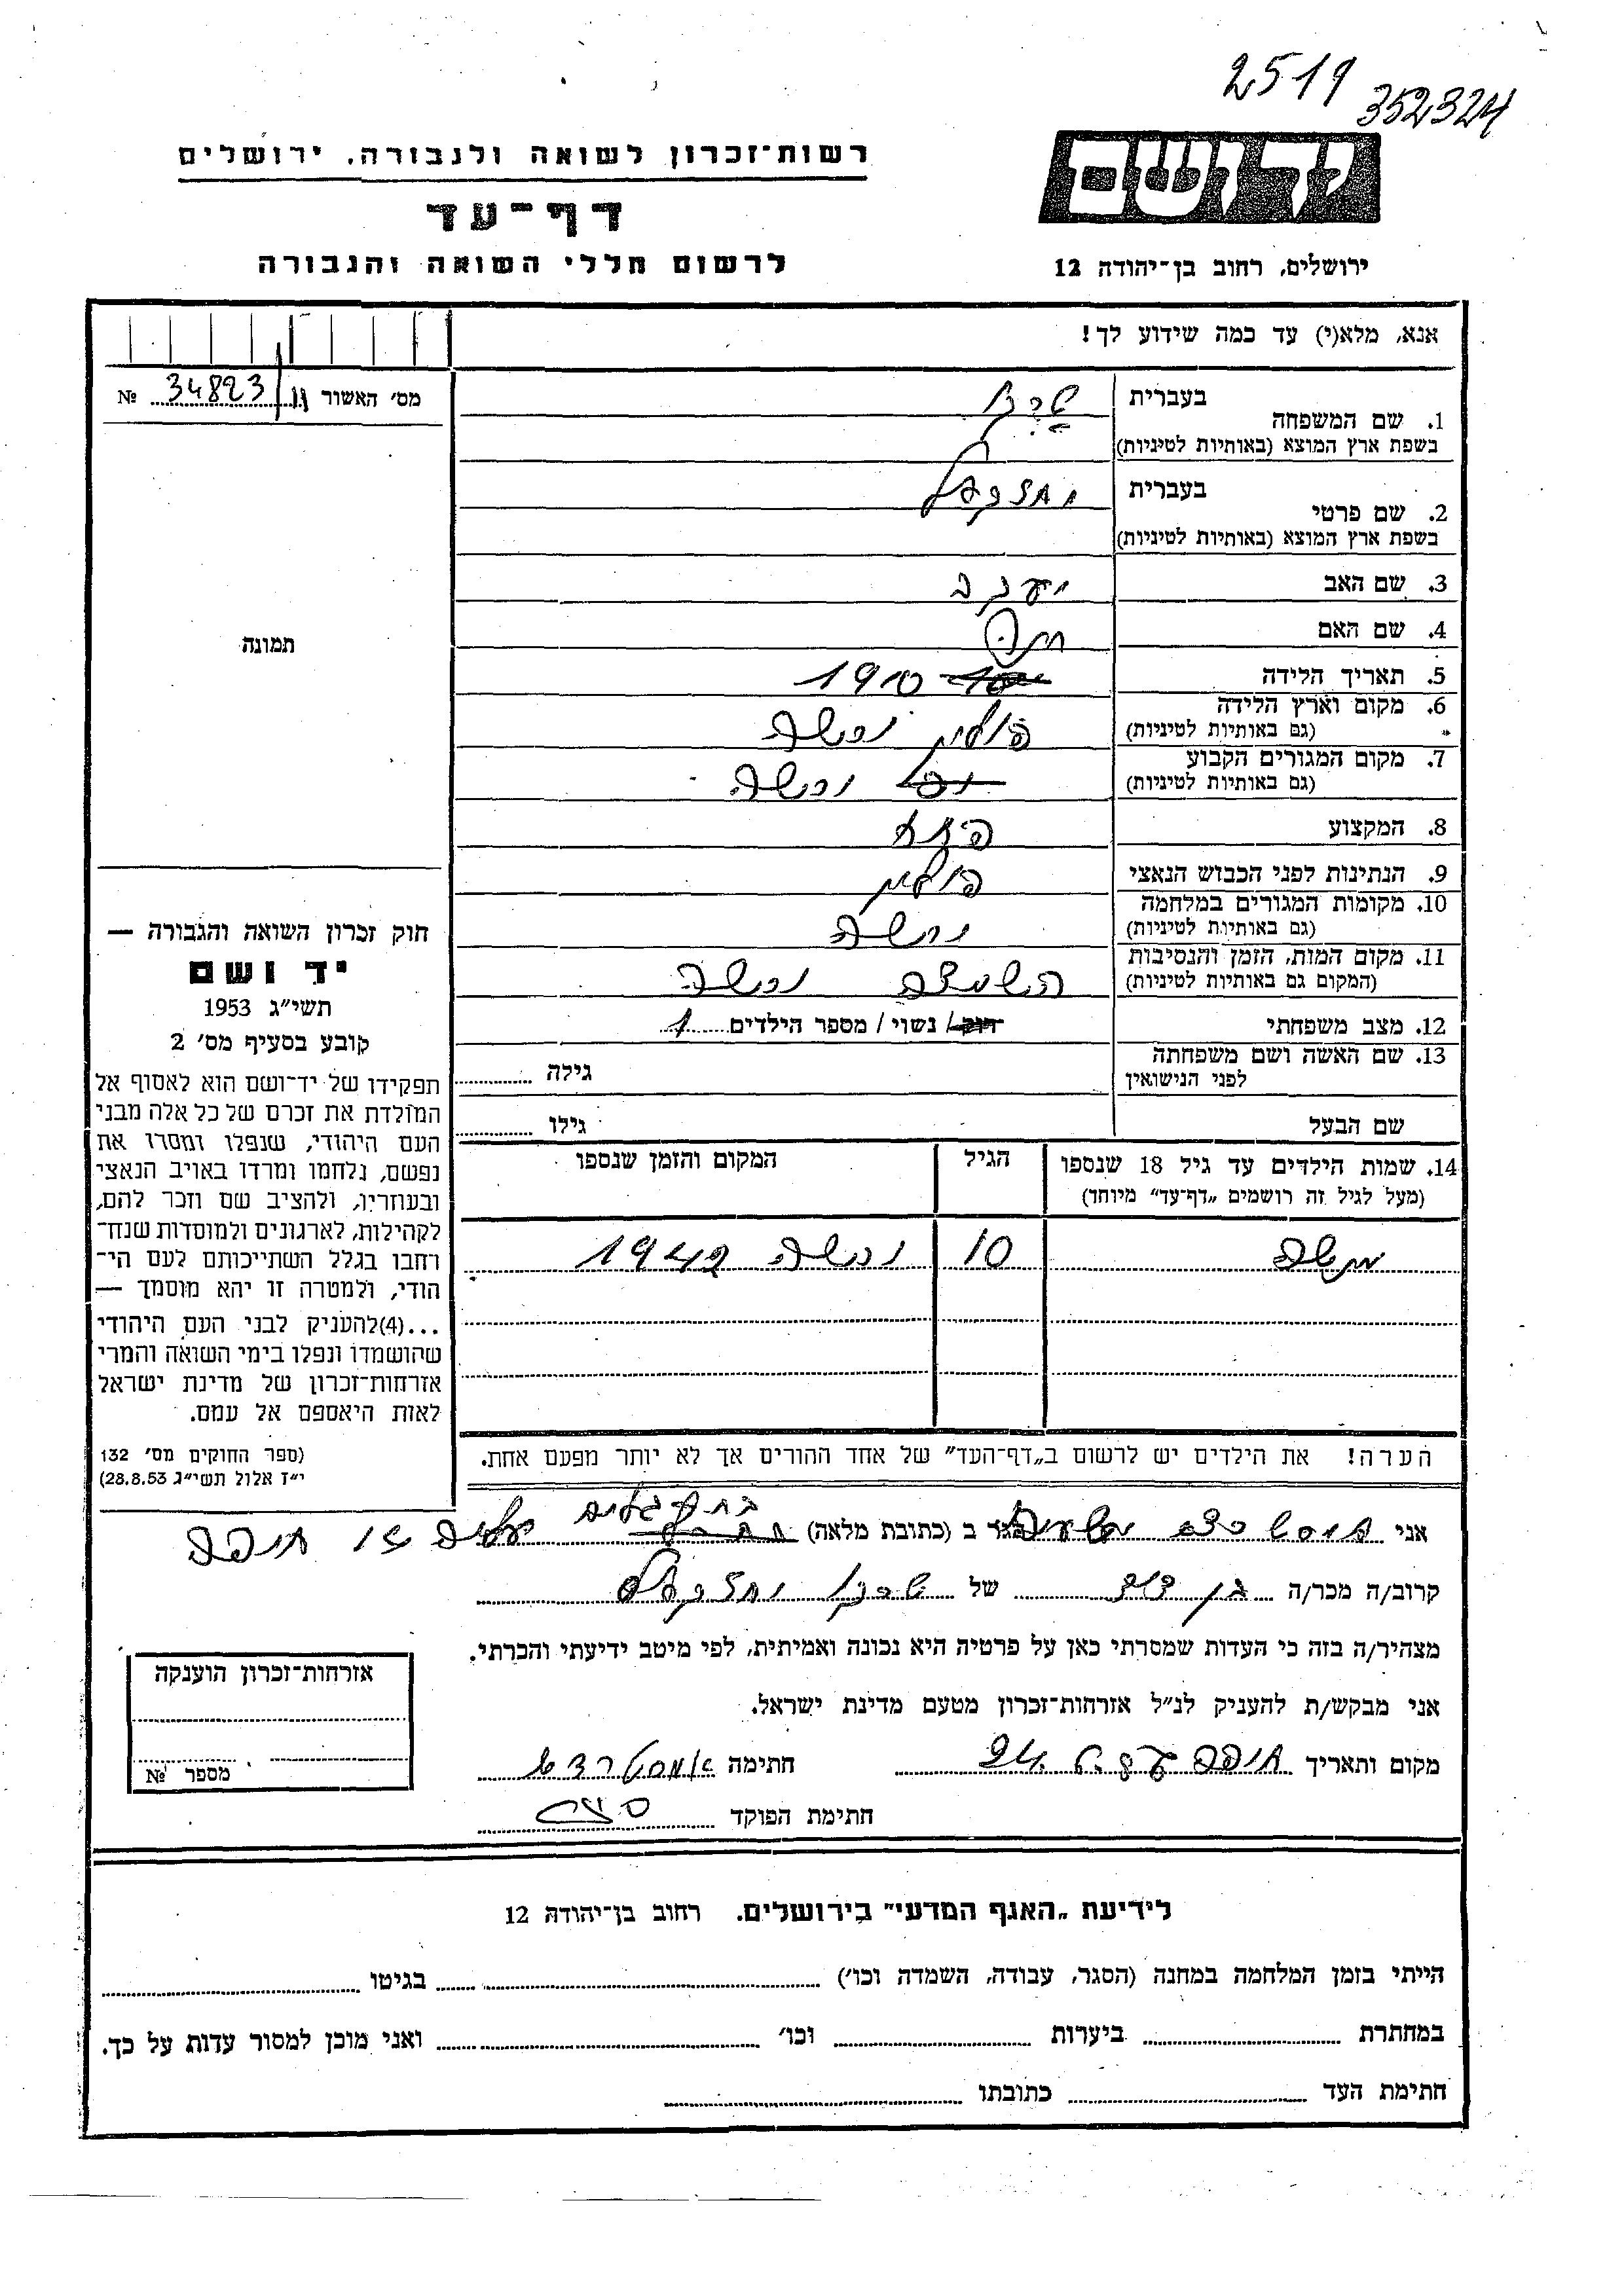 2519
352324
ידושם
רשות־זכרון לשואה ולגבורה, ירושלים
דף־עד
לרשום חללי השואה והגבורה
ירושלים, רחוב בן־יהודה 12
אנא, מלא(י) עד כמה שידוע לך!
מס׳ האשור 34823 №
1. שם המשפחה בעברית
בשפת ארץ המוצא (באותיות לטיניות)
2. שם פרטי בעברית יחזקאל
בשפת ארץ המוצא (באותיות לטיניות)
3. שם האב יעקב
4. שם האם חנה
5. תאריך הלידה 1910
6. מקום וארץ הלידה פולין ורשה
(גם באותיות לטיניות)
7. מקום המגורים הקבוע ורשה
(גם באותיות לטיניות)
8. המקצוע
9. הנתינות לפני הכבוש הנאצי פולין
10. מקומות המגורים במלחמה ורשה
(גם באותיות לטיניות)
11. מקום המות, הזמן והנסיבות השמדה ורשה
(המקום גם באותיות לטיניות)
12. מצב משפחתי רוק/ נשוי / מספר הילדים 1
13. שם האשה ושם משפחתה
לפני הנישואין
גילה
שם הבעל
גילו
14. שמות הילדים עד גיל 18 שנספו
(מעל לגיל זה רושמים „דף־עד״ מיוחד)
הגיל
המקום והזמן שנספו
משה 10 ורשה 1942
תמונה
חוק זכרון השואה והגבורה —
יד ושם
תשי״ג 1953
קובע בסעיף מס׳ 2
תפקידו של יד־ושם הוא לאסוף אל
המולדת את זכרם של כל אלה מבני
העם היהודי, שנפלו ומסרו את
נפשם, נלחמו ומרדו באויב הנאצי
ובעוזריו, ולהציב שם וזכר להם,
לקהילות, לארגונים ולמוסדות שנח־
רחבו בגלל השתייכותם לעם הי־
הודי, ולמטרה זו יהא מוסמך —
...(4)להעניק לבני העם היהודי
שהושמדו ונפלו בימי השואה והמרי
אזרחות־זכרון של מדינת ישראל
לאות היאספם אל עמם.
(ספר החוקים מס׳ 132
י״ז אלול תשי״ג 28.8.53)
הערה! את הילדים יש לרשום ב„דף־העד״ של אחד ההורים אך לא יותר מפעם אחת.
בת גלים
אני הגר ב (כתובת מלאה) חיפה
קרוב/ה מכר/ה בן דוד של יחזקאל
מצהיר/ה בזה כי העדות שמסרתי כאן על פרטיה היא נכונה ואמיתית, לפי מיטב ידיעתי והכרתי.
אני מבקש/ת להעניק לנ״ל אזרחות־זכרון מטעם מדינת ישראל.
מקום ותאריך חיפה חתימה
חתימת הפוקד
אזרחות־זכרון הוענקה
מספר №
לידיעת „האגף המדעי״ בירושלים. רחוב בן־יהודה 12
הייתי בזמן המלחמה במחנה (הסגר, עבודה, השמדה וכו׳) בגיטו
במחתרת ביערות וכו׳ ואני מוכן למסור עדות על כך.
חתימת העד כתובתו